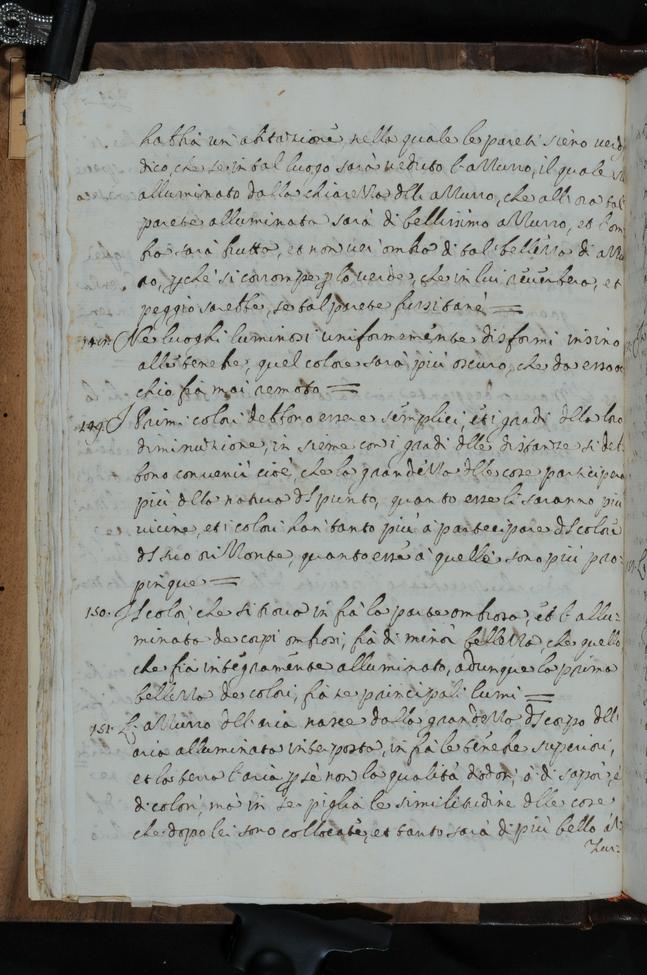 habbia un'abitazione, nella quale le pareti sieno verdi
dico, che se in tal luogo sarà veduto l'azzurro, il quale sia
alluminato dalla chiarezza dell'azzurro, che all'ora tal
parete alluminata sarà di bellissimo azzurro, et l'om
bra sarà brutta, et non ver'ombra di tal bellezza di azzu
ro, p̱chè si corrompe p̱ lo verde, che in lui reverbera, et
peggio sarebbe, se tal parete fussi tanè =
Ne luoghi luminosi uniformemente disformi insino
alle tenebre, quel colore sarà più oscuro, che da esso oc
chio fia mai remoto =
149. I Primi colori debbono essere semplici, et i gradi della loro
diminuzione, insieme con i gradi delle distanze si deb
bono convenir cioè, che la grandezza delle cose participera
più della natura del punto, quanto esse li saranno più
vicine, et i colori han tanto più a partecipare del colore
del suo orizzonte, quanto essi a quelle sono più pro-
pinque =
150. Il color, che si trova in fra la parte ombrosa, et l'allu-
minata de corpi ombrosi, fia di minor bellezza, che quello
che fia integramente alluminato, adunque la prima
bellezza de colori, fia ne principali lumi =
151. L'azzurro dell'aria nasce dalla grandezza del corpo dell'
aria alluminata interposta, in fra le tenebre superiori,
et la terra l'aria p̱ sè non ha qualità d'odori, ò di sapori, ò
di colori, mà in se piglia le similitudine delle cose
che dopo lei sono collocate, et tanto sarà di più bello az-
Zur-